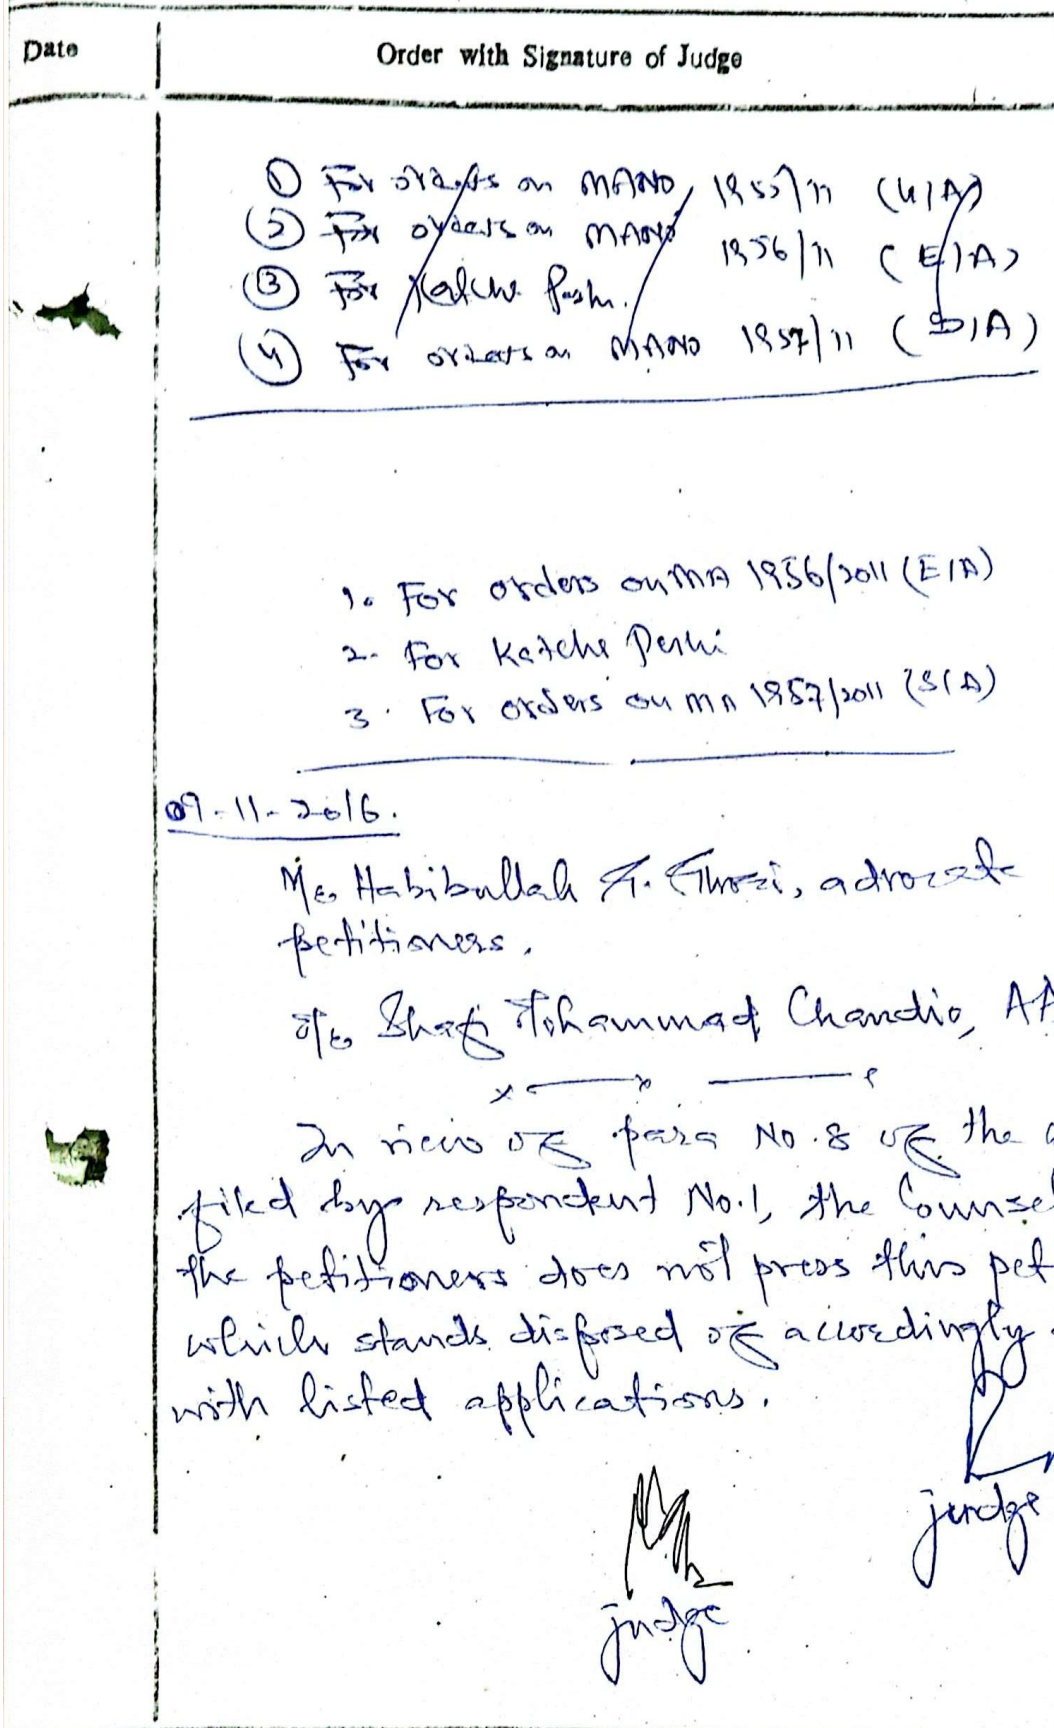 Date
Order with Signature of Judge
① For orders on MANO 1955/11 (U/A)
② For orders on MANO 1956/11 (E/A)
③ For Katcha Peshi.
④ For orders on MANO 1957/11 (S/A)
1. For orders on MA 1956/2011 (E/A)
2. For Katcha Peshi
3. For orders on MA 1957/2011 (S/A)
09-11-2016.
Mr. Habibullah G. Ghori, advocate
petitioners.
Mr. Shafi Mohammad Chandio, AA
In view of para No.8 of the
filed by respondent No.1, the Counsel
the petitioners does not press this pet
which stands disposed of accordingly
with listed applications.
judge
judge